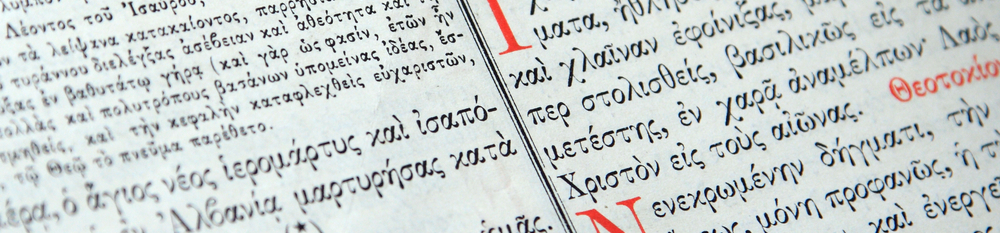 Λέοντος τοῦ Ἰσαύρου,
τὰ λείψανα κατακαίοντος,
τυράννου διελέγξας ἀσέβειαν καὶ ἀθεότητα καὶ
ἐν βαθυτάτῳ γήρᾳ (καὶ γὰρ ὡς φασίν, ἐτῶν ἦν
καὶ πολυτρόπους βασάνων ὑπομείνας ἰδέας, ἔσ-
καὶ τὴν κεφαλὴν καταφλεχθεὶς εὐχαριστῶν,
τῷ Θεῷ τὸ πνεῦμα παρέθετο.
ὁ ἅγιος νέος ἱερομάρτυς καὶ ἰσαπό-
Ἀλβανίᾳ μαρτυρήσας κατὰ
ματα,
καὶ χλαῖναν ἐφοίνιξας,
περ στολισθείς, βασιλικῶς εἰς
μετέστης, ἐν χαρᾷ ἀναμέλπων· Λαὸς
Χριστὸν εἰς τοὺς αἰῶνας. Θεοτοκίον
Νενεκρωμένην δήγματι, τὴν
μόνη προφανῶς, ἡ
καὶ